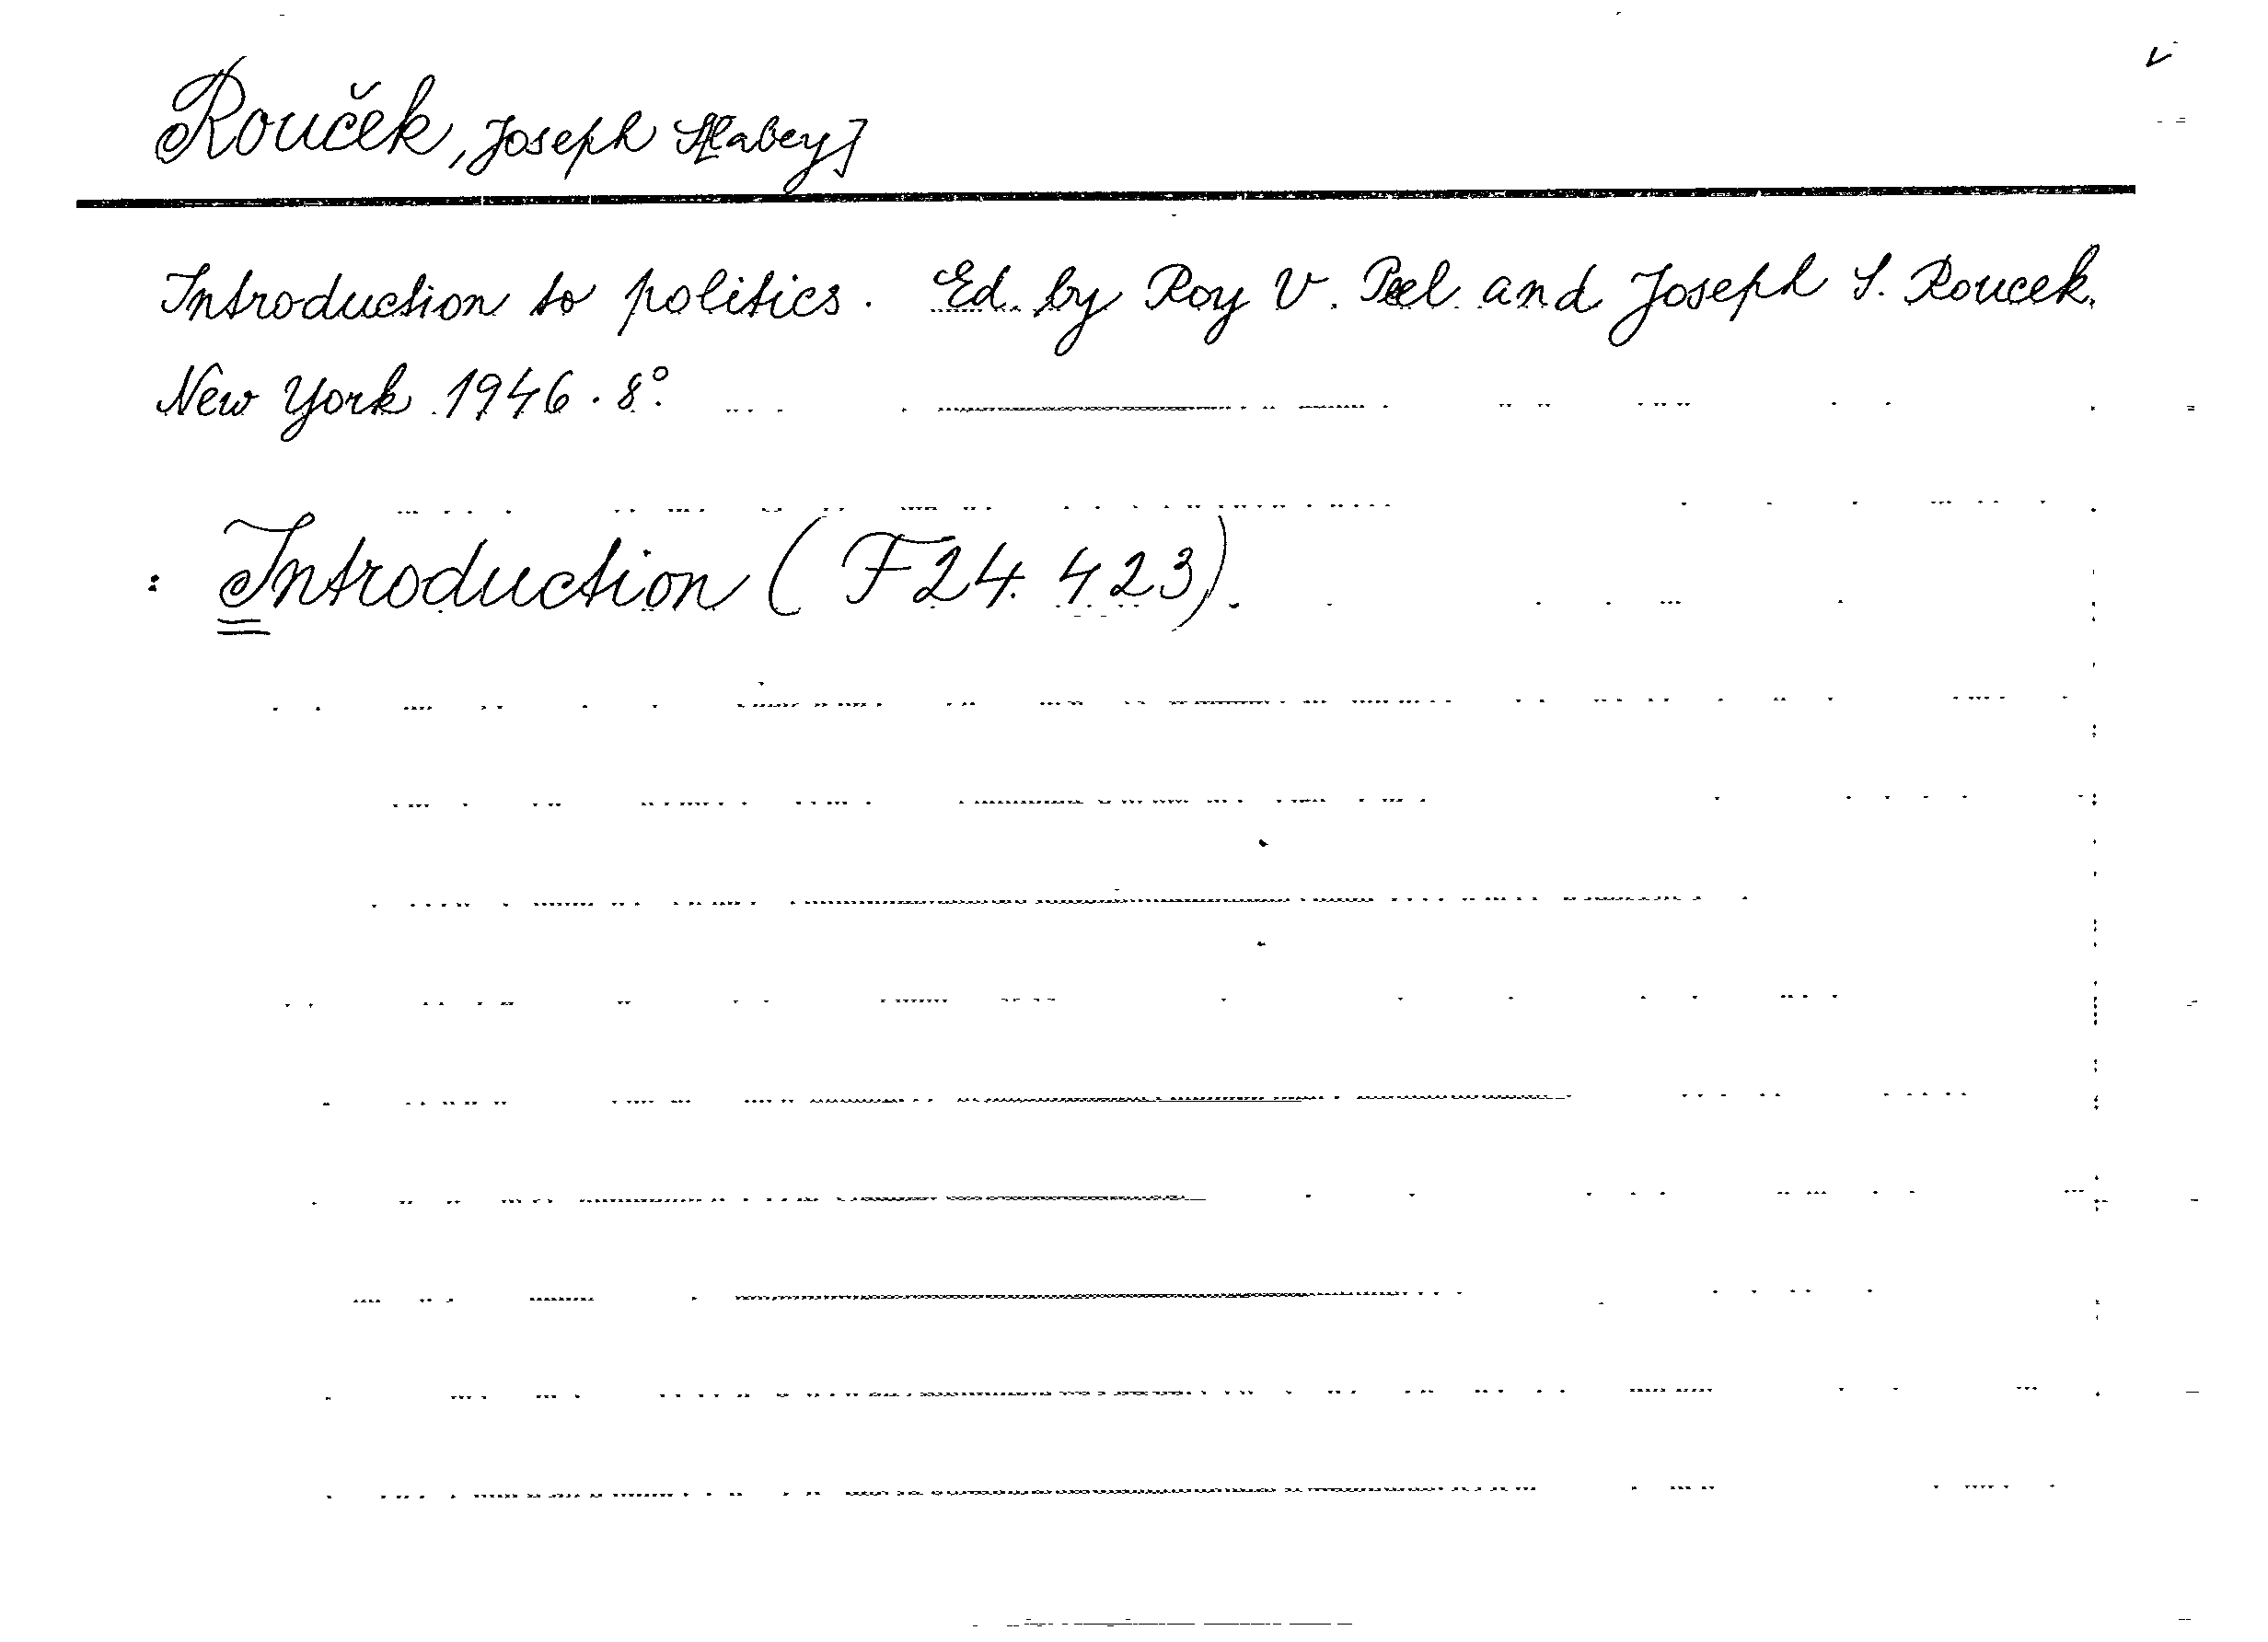 Rouček, Joseph S[labey]
Introduction to politics. Ed. by Roy V. Peel and Joseph S. Roucek.
New York 1946. 8°.
: Introduction (F 24.423).